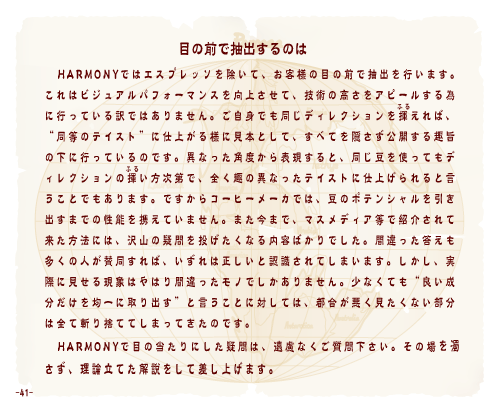 目の前で抽出するのは
HARMONYではエスプレッソを除いて、お客様の目の前で抽出を行います。
これはビジュアルパフォーマンスを向上させて、技術の高さをアピールする為
に行っている訳ではありません。ご自身でも同じディレクションを揮えれば、
“同等のテイスト”に仕上がる様に見本として、すべてを隠さず公開する趣旨
の下に行っているのです。異なった角度から表現すると、同じ豆を使ってもデ
ィレクションの揮い方次第で、全く趣の異なったテイストに仕上げられると言
うことでもあります。ですからコーヒーメーカでは、豆のポテンシャルを引き
出すまでの性能を携えていません。また今まで、マスメディア等で紹介されて
来た方法には、沢山の疑問を投げたくなる内容ばかりでした。間違った答えも
多くの人が賛同すれば、いずれは正しいと認識されてしまいます。しかし、実
際に見せる現象はやはり間違ったモノでしかありません。少なくても“良い成
分だけを均一に取り出す”と言うことに対しては、都合が悪く見たくない部分
は全て斬り捨ててしまってきたのです。
HARMONYで目の当たりにした疑問は、遠慮なくご質問下さい。その場を濁
さず、理論立てた解説をして差し上げます。
-41-